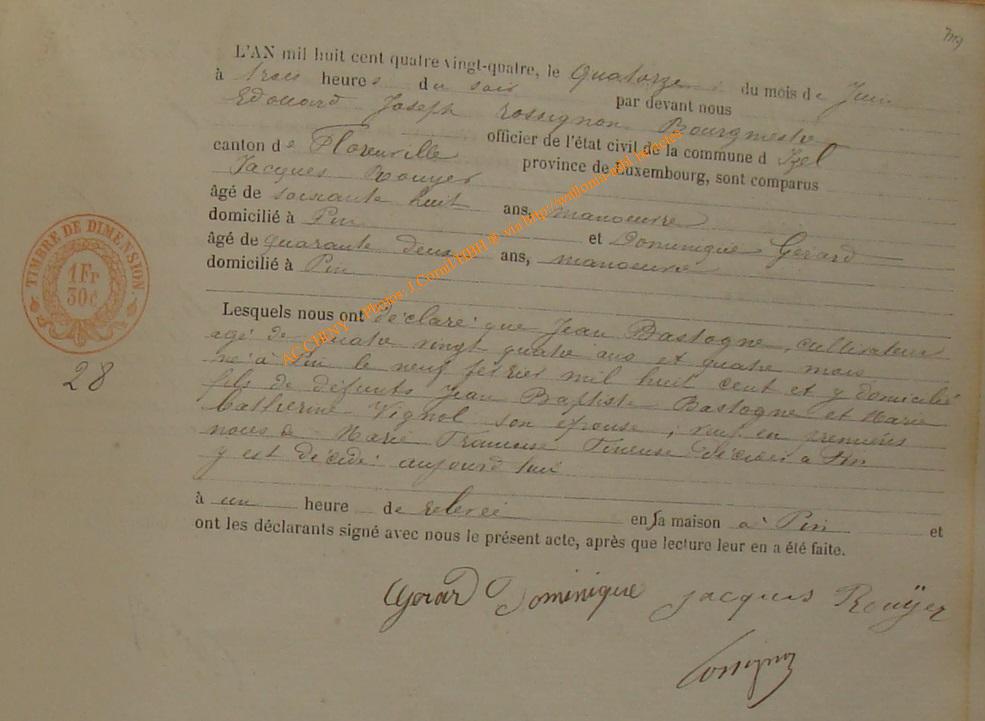 L'AN mil huit cent quatre vingt-quatre, le Quatorze du mois de Juin
à trois heures du soir par devant nous
Edouard Joseph Rossignon Bourgmestre
officier de l'état civil de la commune d Izel
canton de Florenville province de Luxembourg, sont comparus
Jacques Rouyer
âgé de soixante huit ans, manoeuvre
domicilié à Pin et Dominique Gerard
âgé de quarante deux ans, manoeuvre
domicilié à Pin
Lesquels nous ont déclaré que Jean Bastogne, cultivateur
agé de quatre vingt quatre ans et quatre mois
né à Pin le neuf fevrier mil huit cent et y domicilié
fils de défunts Jean Baptiste Bastogne et Marie
Catherine Vignol son épouse; veuf en premières
noces de Marie Françoise décédée à Pin
y est décédé aujourd'hui
à un heure de relevée en sa maison à Pin et
ont les déclarants signé avec nous le présent acte, après que lecture leur en a été faite.
Gerard Dominique Jacques Rouÿer
Rossignon
TIMBRE DE DIMENSION
1Fr
30c
28